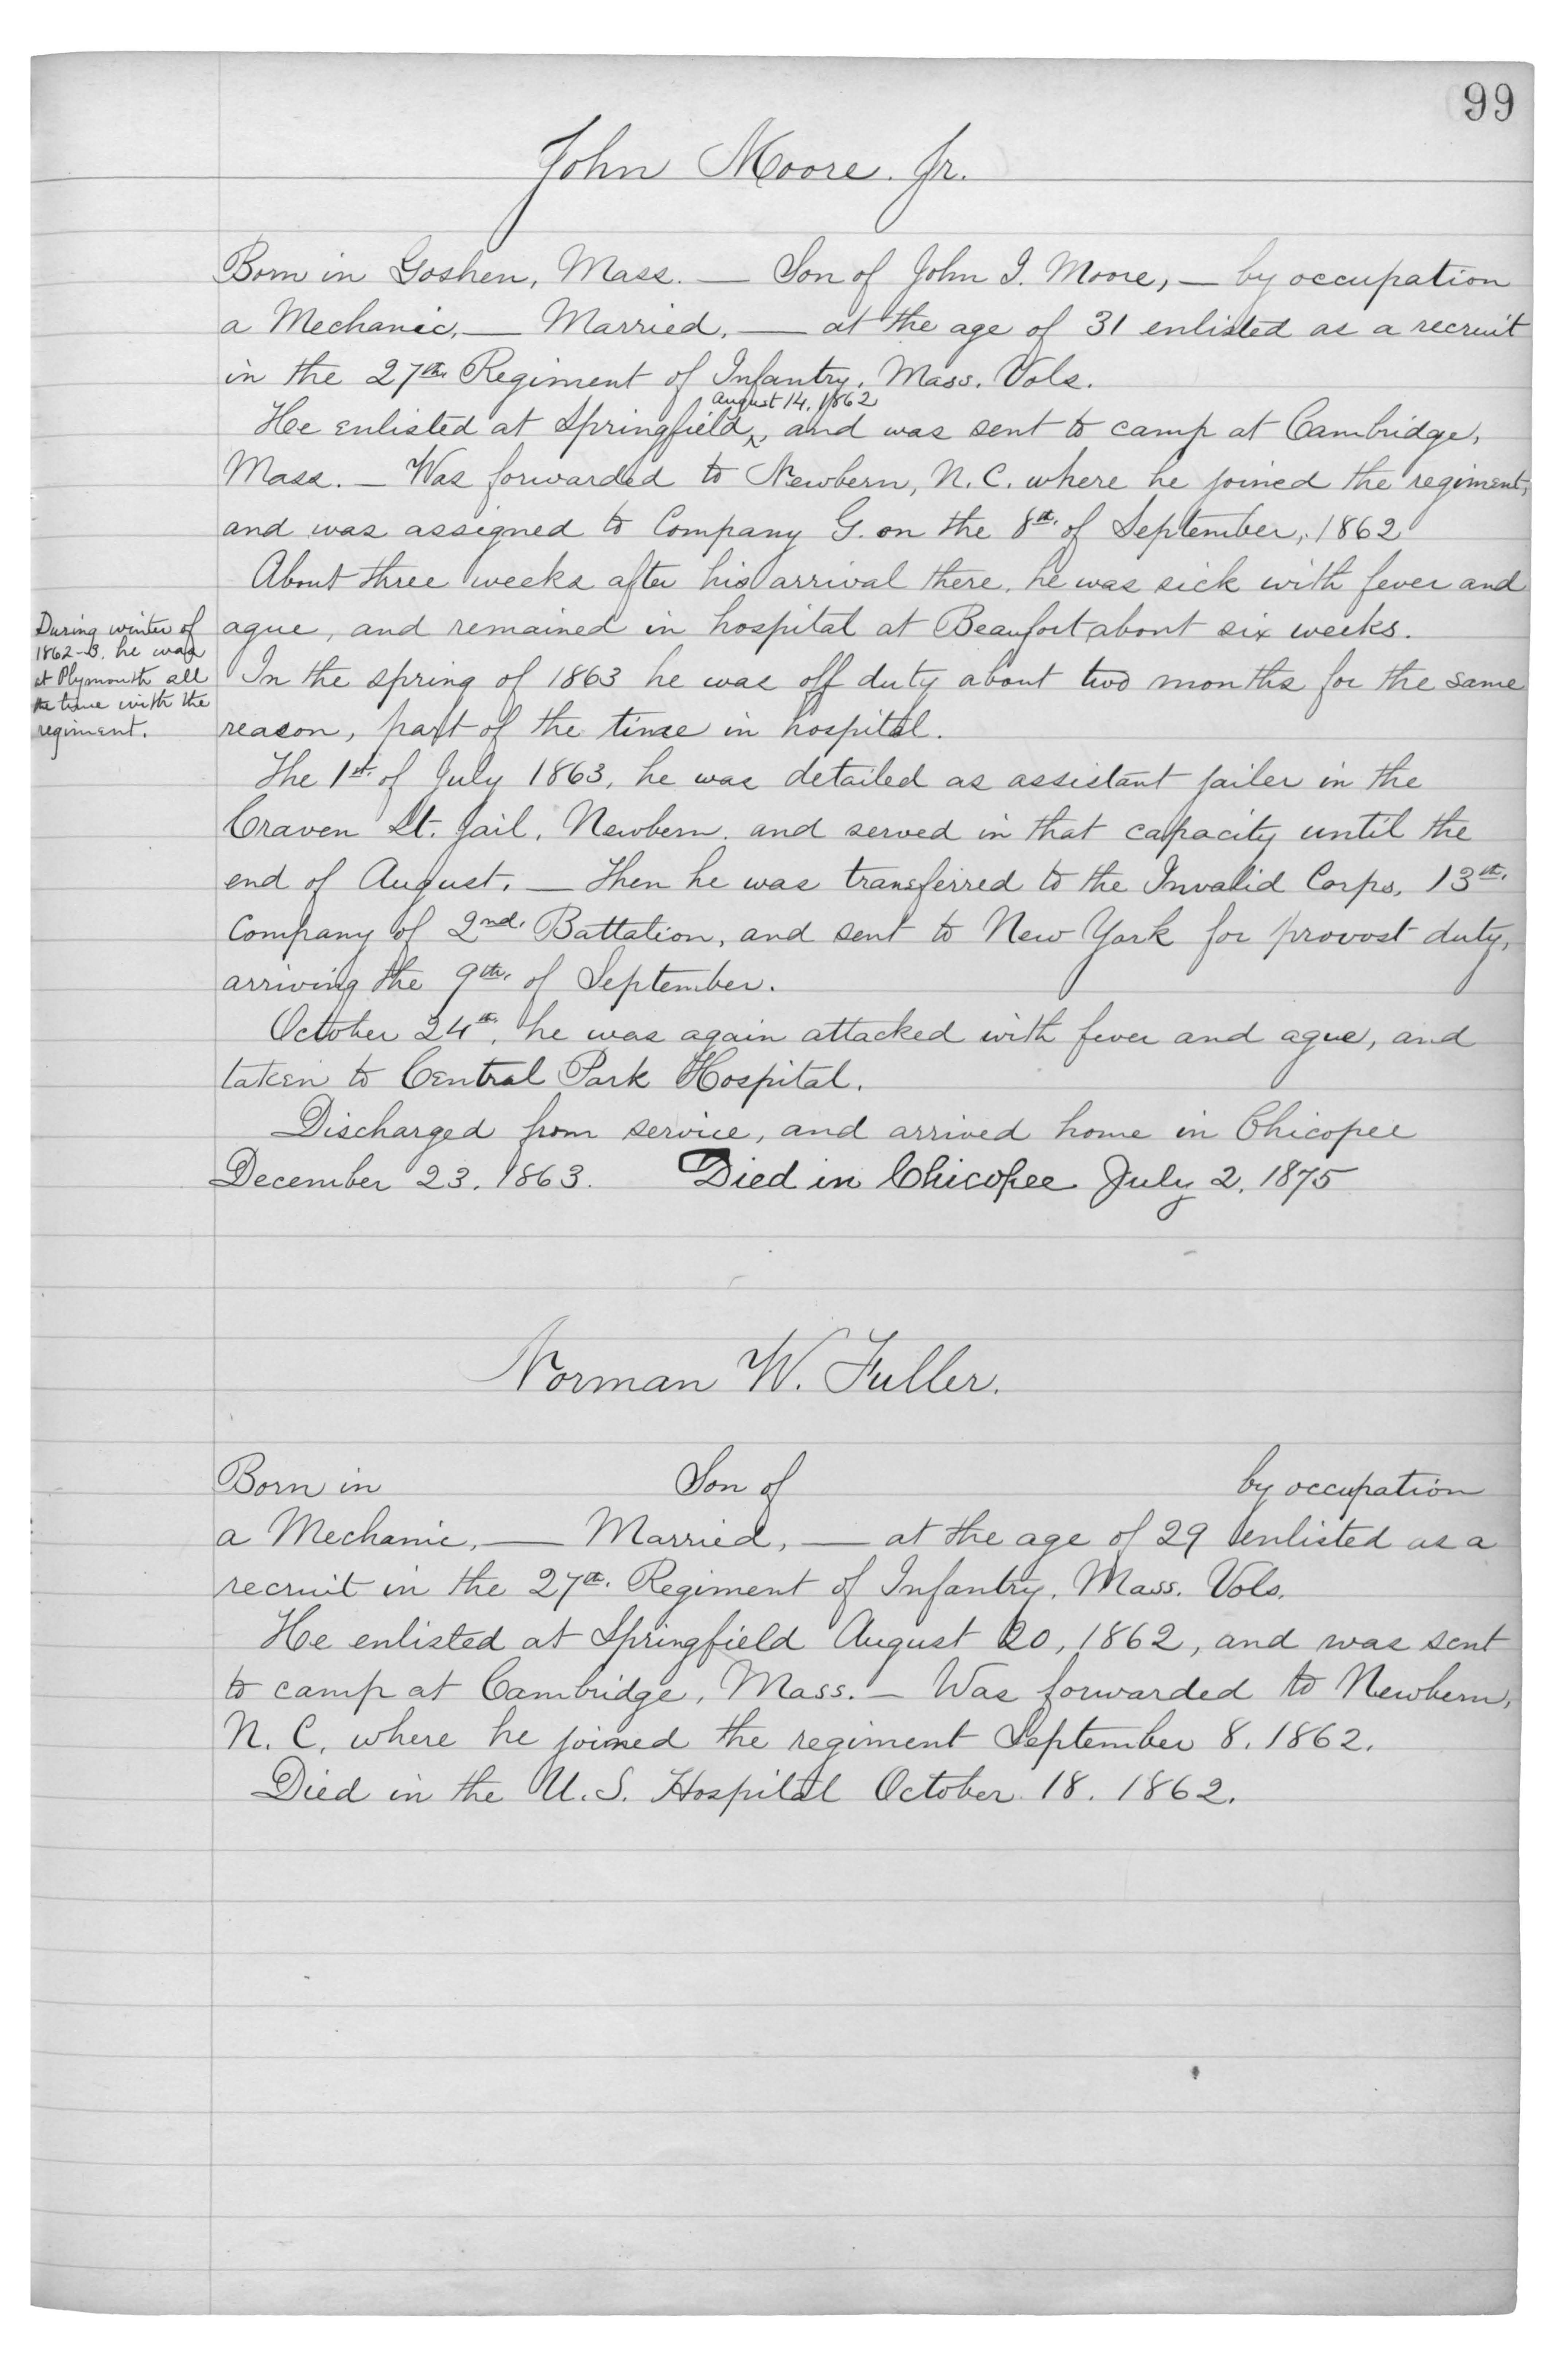 99
John Moore. Jr.
Born in Goshen, Mass. — Son of John I. Moore, — by occupation
a Mechanic, — Married, — at the age of 31 enlisted as a recruit
in the 27th. Regiment of Infantry, Mass. Vols.
August 14, 1862
He enlisted at Springfield ^, and was sent to camp at Cambridge,
Mass. — Was forwarded to Newbern, N.C. where he joined the regiment,
and was assigned to Company G. on the 8th. of September, 1862
About three weeks after his arrival there, he was sick with fever and
ague, and remained in hospital at Beaufort about six weeks.
During winter of
1862-3. he was
at Plymouth all
the time with the
regiment.
In the spring of 1863 he was off duty about two months for the same
reason, part of the time in hospital.
The 1st. of July 1863, he was detailed as assistant jailer in the
Craven St. Jail, Newbern, and served in that capacity until the
end of August. — Then he was transferred to the Invalid Corps, 13th.
Company of 2nd. Battalion, and sent to New York for provost duty,
arriving the 9th. of September.
October 24th. he was again attacked with fever and ague, and
taken to Central Park Hospital.
Discharged from service, and arrived home in Chicopee
December 23, 1863. Died in Chicopee July 2, 1875
Norman W. Fuller.
Born in Son of by occupation
a Mechanic, — Married, — at the age of 29 enlisted as a
recruit in the 27th. Regiment of Infantry, Mass. Vols.
He enlisted at Springfield August 20, 1862, and was sent
to camp at Cambridge, Mass. — Was forwarded to Newbern,
N.C. where he joined the regiment September 8. 1862.
Died in the U.S. Hospital October 18. 1862.